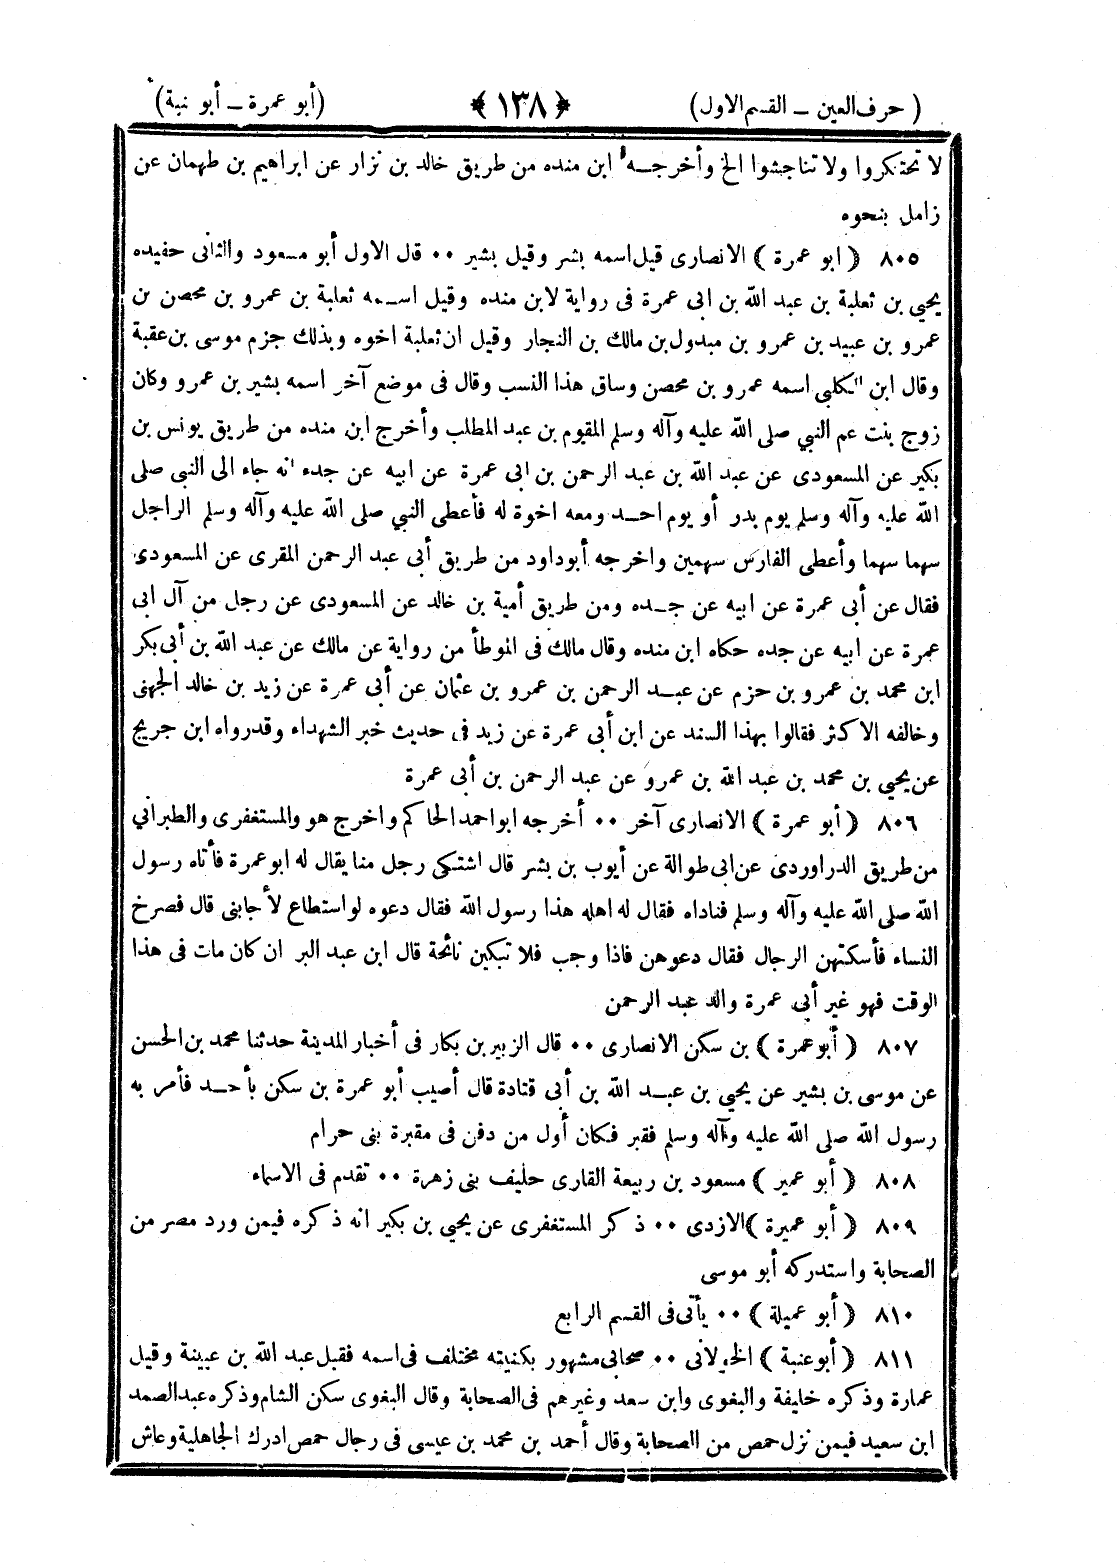 ( حرف العين – القسم الاول ) ﴿ ١٣٨ ﴾ (أبو عمرة – أبو نبة)
لا تحتكروا ولا تناجشوا الخ وأخرجه ابن منده من طريق خالد بن نزار عن ابراهيم بن طهمان عن
زامل بنحوه
٨٠٥ ( ابو عمرة ) الانصارى قيل اسمه بشر وقيل بشير ٠٠ قال الاول أبو مسعود والثانى حفيده
يحيى بن ثعلبة بن عبد الله بن ابى عمرة فى رواية لابن منده وقيل اسمه ثعلبة بن عمرو بن محصن بن
عمرو بن عبيد بن عمرو بن مبدول بن مالك بن النجار وقيل ان ثعلبة اخوه وبذلك جزم موسى بن عقبة
وقال ابن الكلبي اسمه عمرو بن محصن وساق هذا النسب وقال فى موضع آخر اسمه بشير بن عمرو وكان
زوج بنت عم النبي صلى الله عليه وآله وسلم المقوم بن عبد المطلب وأخرج ابن منده من طريق يونس بن
بكير عن المسعودى عن عبد الله بن عبد الرحمن بن ابى عمرة عن ابيه عن جده انه جاء الى النبي صلى
الله عليه وآله وسلم يوم بدر أو يوم احد ومعه اخوة له فأعطى النبي صلى الله عليه وآله وسلم الراجل
سهما سهما وأعطى الفارس سهمين واخرجه أبوداود من طريق أبى عبد الرحمن المقرى عن المسعودى
فقال عن أبى عمرة عن ابيه عن جده ومن طريق أمية بن خالد عن المسعودى عن رجل من آل ابى
عمرة عن ابيه عن جده حكاه ابن منده وقال مالك فى الموطأ من رواية عن مالك عن عبد الله بن أبى بكر
ابن محمد بن عمرو بن حزم عن عبد الرحمن بن عمرو بن عثمان عن أبى عمرة عن زيد بن خالد الجهنى
وخالفه الاكثر فقالوا بهذا السند عن ابن أبى عمرة عن زيد فى حديث خبر الشهداء وقدرواه ابن جريج
عن يحيى بن محمد بن عبد الله بن عمرو عن عبد الرحمن بن أبى عمرة
٨٠٦ ( أبو عمرة ) الانصارى آخر ٠٠ أخرجه ابواحمد الحاكم واخرج هو والمستغفرى والطبراني
من طريق الدراوردى عن ابى طوالة عن أيوب بن بشر قال اشتكى رجل منا يقال له ابو عمرة فأتاه رسول
الله صلى الله عليه وآله وسلم فناداه فقال له اهله هذا رسول الله فقال دعوه لو استطاع لأجابنى قال فصرخ
النساء فأسكتهن الرجال فقال دعوهن فاذا وجب فلا تبكين نائحة قال ابن عبد البر ان كان مات فى هذا
الوقت فهو غير أبى عمرة والد عبد الرحمن
٨٠٧ ( أبو عمرة ) بن سكن الانصارى ٠٠ قال الزبير بن بكار فى أخبار المدينة حدثنا محمد بن الحسن
عن موسى بن بشير عن يحيى بن عبد الله بن أبى قتادة قال أصيب أبو عمرة بن سكن بأحد فأمر به
رسول الله صلى الله عليه وآله وسلم فقبر فكان أول من دفن فى مقبرة بنى حرام
٨٠٨ ( أبو عمير ) مسعود بن ربيعة القارى حليف بنى زهرة ٠٠ تقدم فى الاسماء
٨٠٩ ( أبو عميرة )الازدى ٠٠ ذكر المستغفرى عن يحيى بن بكير انه ذكره فيمن ورد مصر من
الصحابة واستدركه أبو موسى
٨١٠ ( أبو عميلة ) ٠٠ يأتى فى القسم الرابع
٨١١ ( أبو عنبة ) الخولانى ٠٠ صحابى مشهور بكنيته مختلف فى اسمه فقيل عبد الله بن عبينة وقيل
عمارة وذكره خليفة والبغوى وابن سعد وغيرهم فى الصحابة وقال البغوى سكن الشام وذكره عبد الصمد
ابن سعيد فيمن نزل حمص من الصحابة وقال أحمد بن محمد بن عيسى فى رجال حمص ادرك الجاهلية وعاش